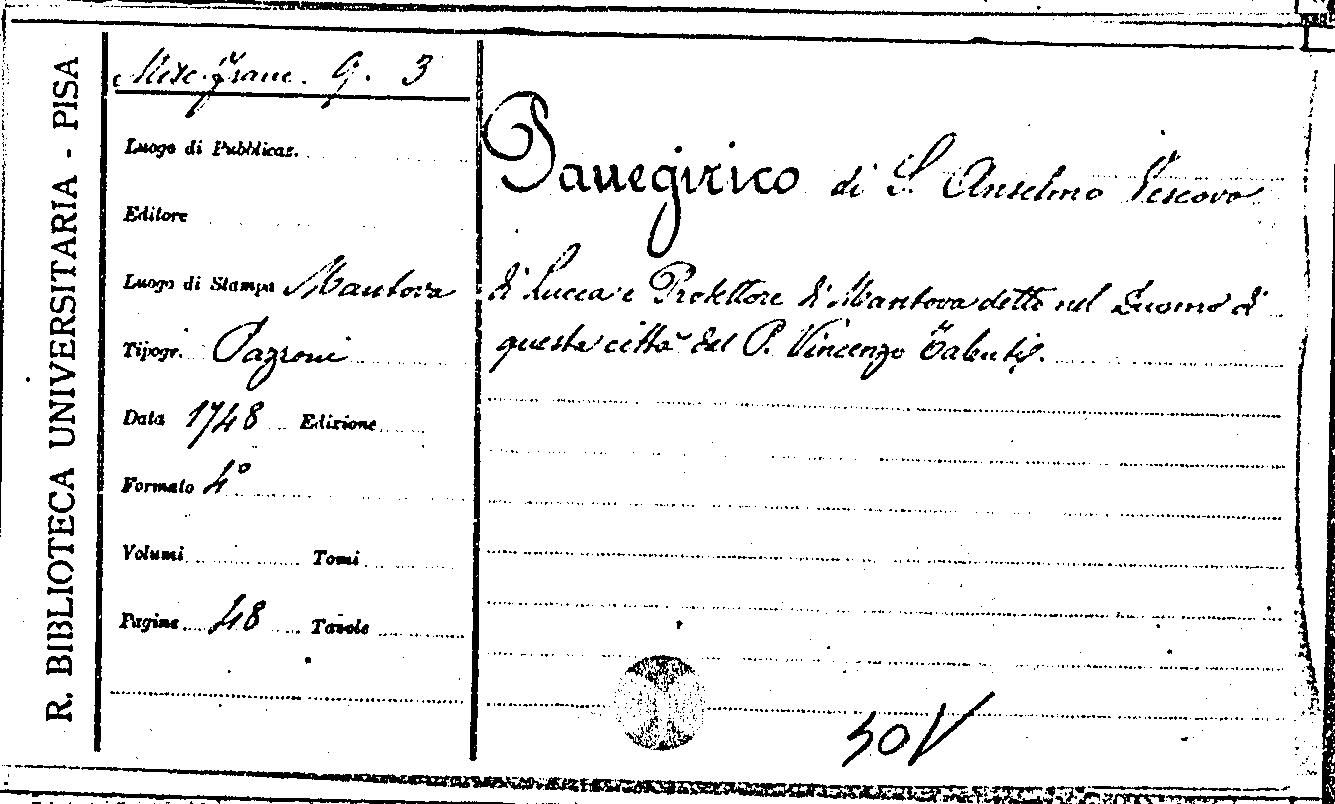 R. BIBLIOTECA UNIVERSITARIA - PISA
Misc. franc. 9. 3
Luogo di Pubblicaz.
Editore
Luogo di Stampa Mantova
Tipogr. Pazzoni
Data 1748 Edizione
Formato 4°
Volumi Tomi
Pagine 48 Tavole
Panegirico di S. Anselmo Vescovo
di Lucca e Protettore di Mantova detto nel Duomo di
questa città dal P. Vincenzo